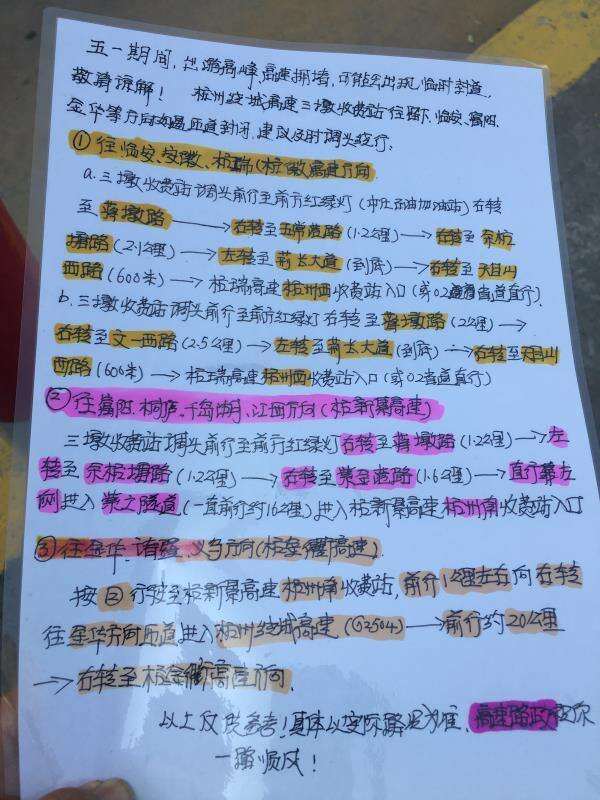 五一期间,出游高峰高速拥堵,可能会出现临时封道,
敬请谅解! 杭州绕城高速三墩收费站往留下、临安、富阳、
金华等方向如遇匝道封闭,建议及时调头绕行.
① 往临安、安徽、杭瑞(杭徽高速)方向
a. 三墩收费站调头前行至前方红绿灯(中石油加油站)右转
至蒋墩路 → 右转至五常港路(1.2公里) → 右转至余杭
塘路(2.1公里) → 左转至荆长大道(到底) → 右转至天目山
西路(600米) → 杭瑞高速杭州西收费站入口(或02省道直行).
b. 三墩收费站调头前行至前方红绿灯右转至蒋墩路(2公里) →
右转至文一西路(2.5公里) → 左转至荆长大道(到底) → 右转至天目山
西路(600米) → 杭瑞高速杭州西收费站入口(或02省道直行)
② 往富阳、桐庐、千岛湖、江西方向(杭新景高速)
三墩收费站调头前行至前方红绿灯右转至蒋墩路(1.2公里) → 左
转至余杭塘路(1.2公里) → 右转至紫金港路(1.6公里) → 直行靠左
侧进入紫之隧道(一直前行约16公里)进入杭新景高速杭州南收费站入口
③ 往金华、诸暨、义乌方向(杭金衢高速).
按②行驶至杭新景高速杭州南收费站,前行1公里左右向右转
往金华方向匝道进入杭州绕城高速(G2504) → 前行约20公里
→ 右转至杭金衢高速方向.
以上仅供参考!具体以实际路况为准.高速路政祝你
一路顺风!